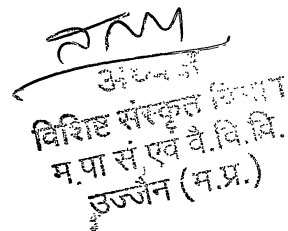 अध्यक्ष
विशिष्ट संस्कृत विभाग
म.पा सं.एव वै.वि.वि.
उज्जैन (म.प्र.)